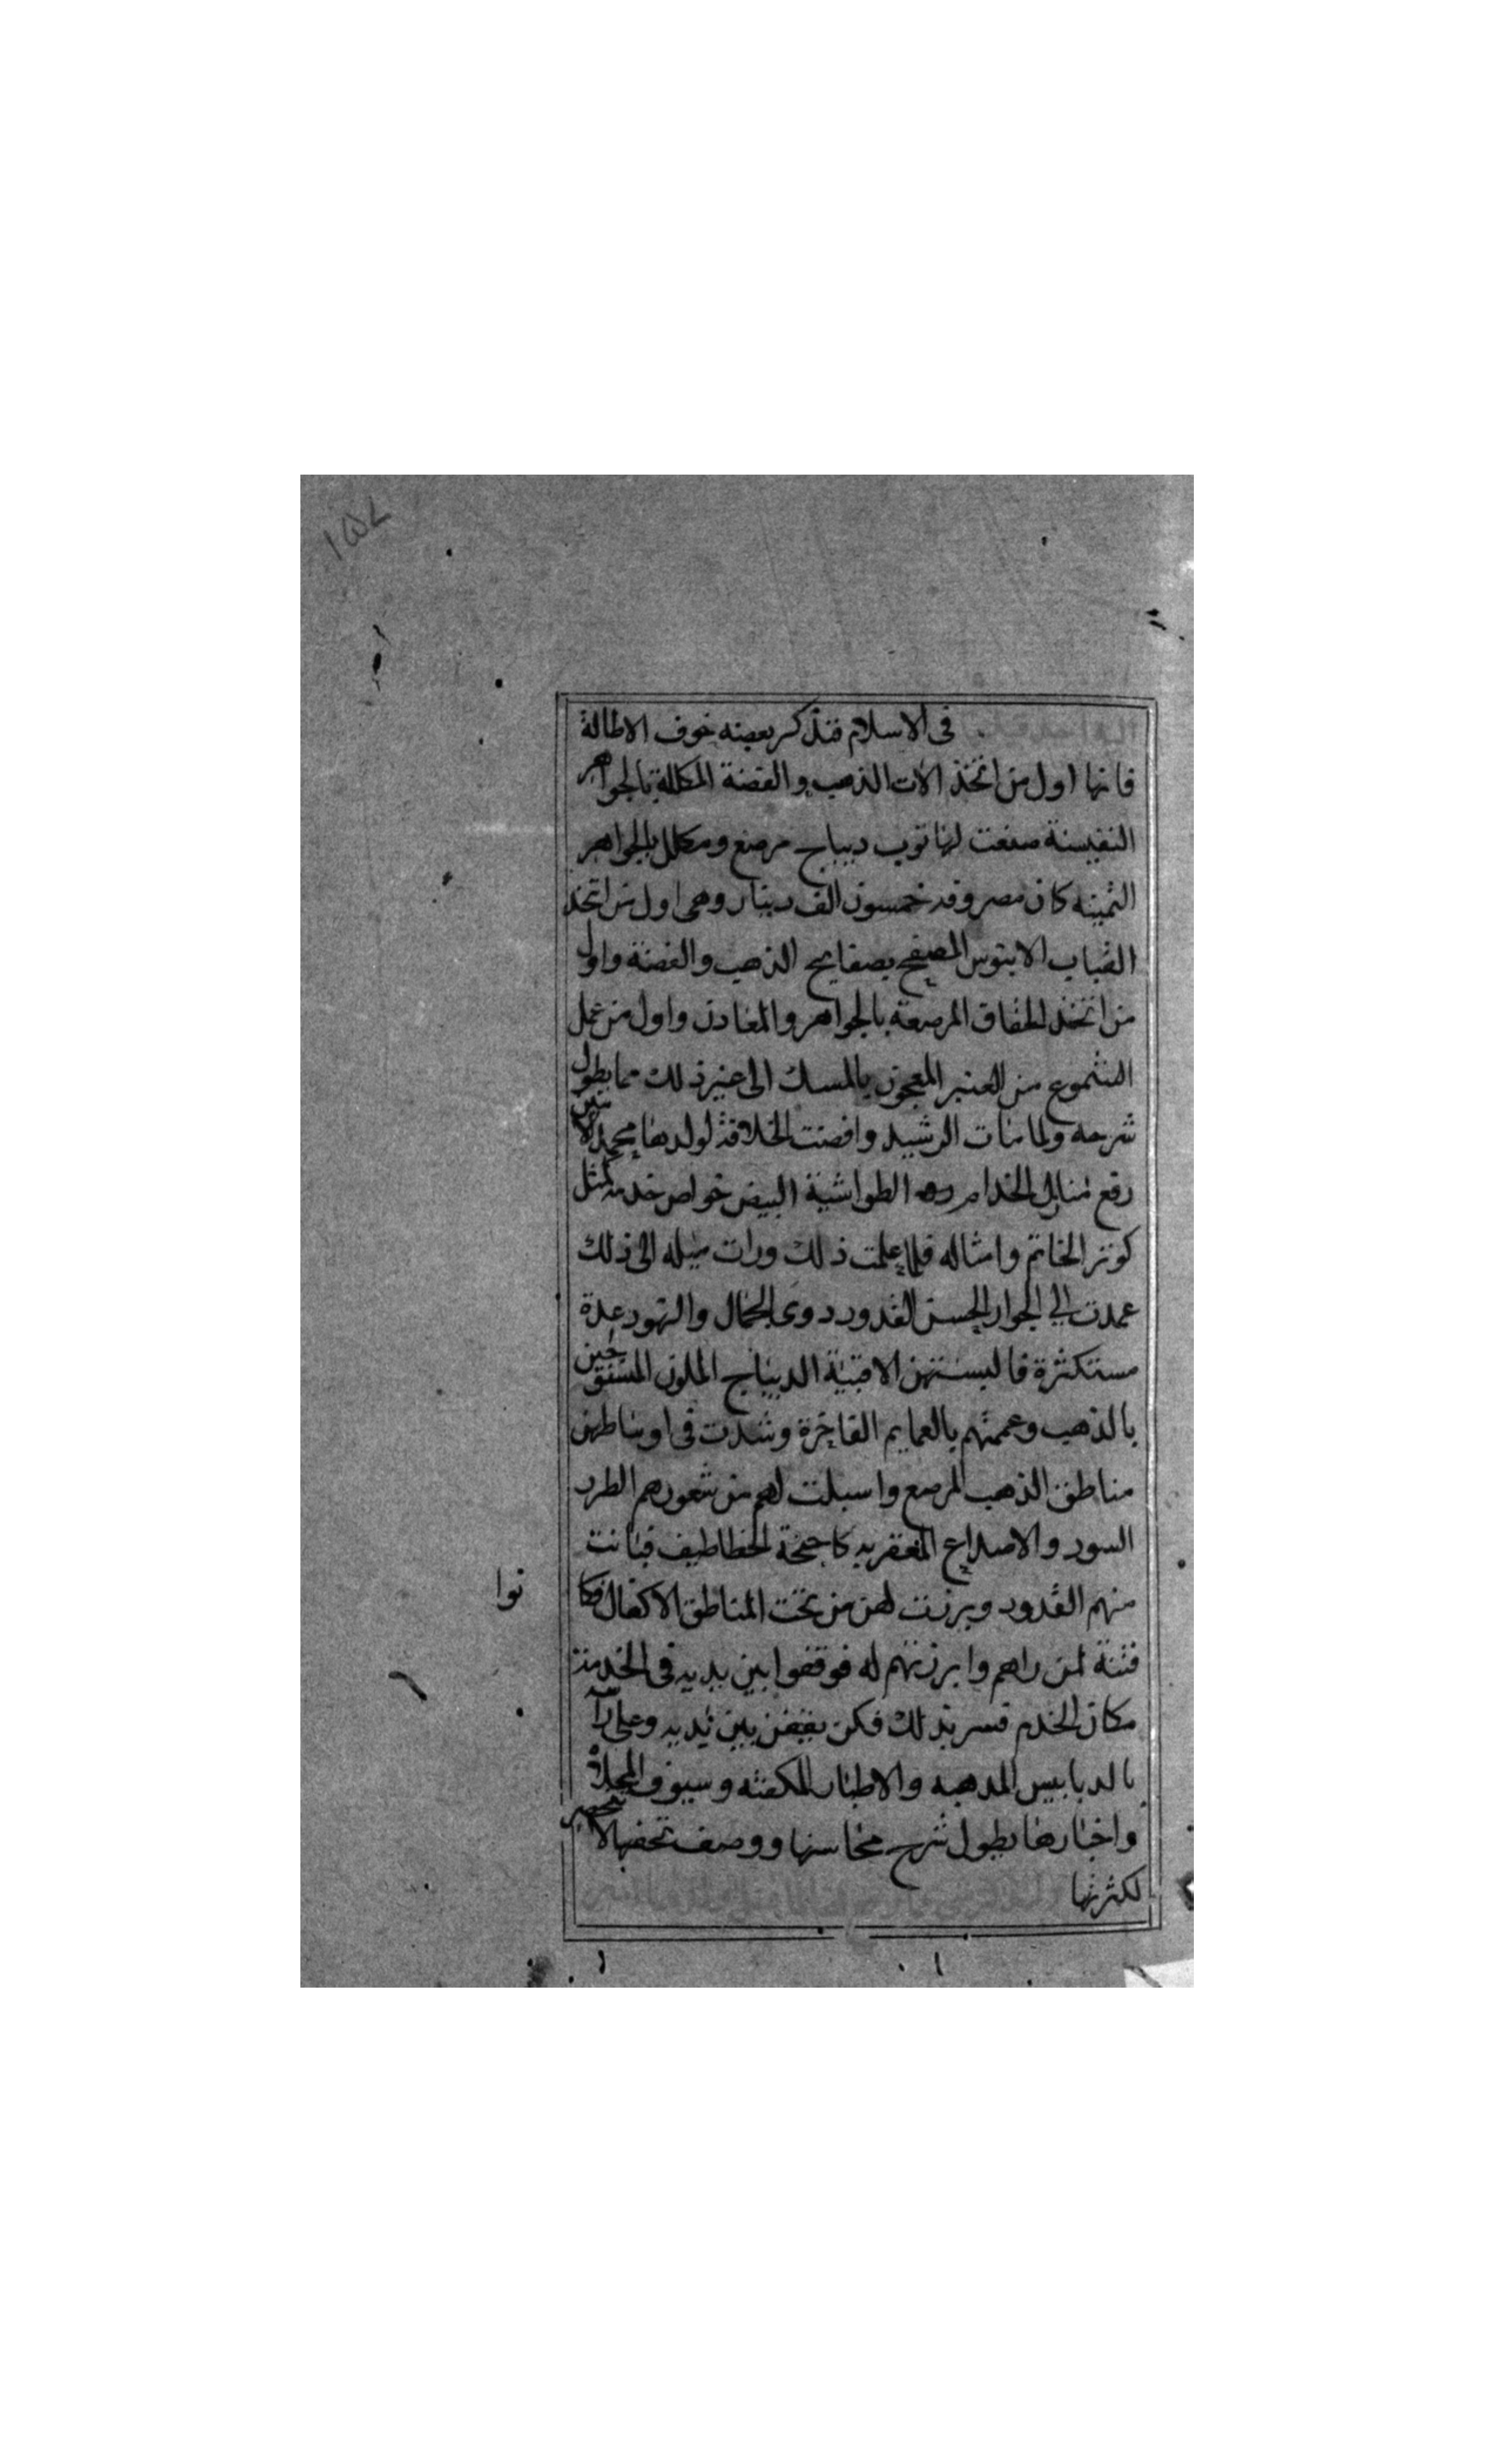 فى الاسلام فنذكر بعضه خوف الاطالة
فانها اول من اتخذ الات الذهب والفضة المكللة بالجواهر
النفيسة صنعت لها ثوب ديباج مرصع ومكلل بالجواهر
الثمينه كان مصروفه خمسون الف دينار وهى اول من اتخذ
القباب الابنوس المصفح بصفايح الذهب والفضة واول
من اتخذ الخفاق المرصعة بالجواهر والمعادن واول من عمل
الشموع من العنبر المعجون بالمسك الى غير ذلك مما يطول
شرحه ولما مات الرشيد وافضت الخلافة لولدها محمد الامين
رفع منابل الخدام وهم الطواشية البيض خواص خدمه لمثل
كوثر الخاتم وامثاله فلما علمت ذلك ورات ميله الى ذلك
عمدت الي الجوار الحسن القدور دوى الجمال والنهود عدة
مستكثرة فالبستهن الاقبية الديباج الملون المنسوجين
بالذهب وعممتهم بالعمايم الفاخرة وشدت فى اوساطهن
مناطق الذهب المرصع واسبلت لهم من شعورهم الطرر
السود والاصداع المعقربه كاجنحة الخطاطيف فبانت
منهم القدود وبرزت لهن من تحت المناطق الاكفال فكا
نوا
فتنة لمن راهم وابرزتهم له فوقفوا بين يديه فى الخدمة
مكان الخدم فسر بذلك فكن يقفن بين يديه وعلى راسه
بالدبابيس المدهبه والاطبار المكفته وسيوف المجلاه
واخبارها يطول شرح محاسنها ووصف تحفها لا تحصر
لكثرتها